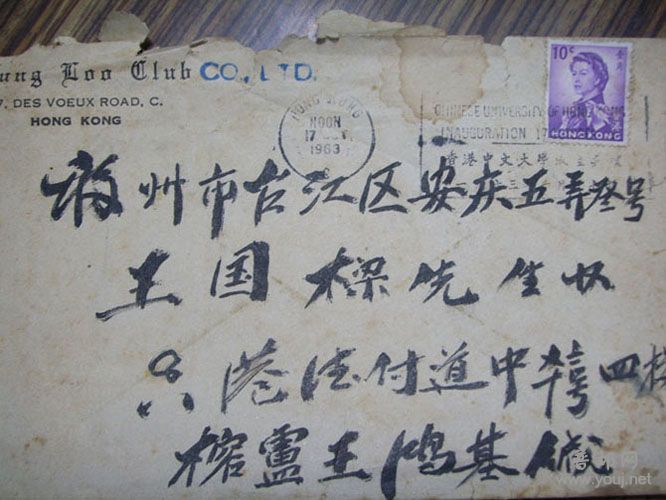 ung Loo Club CO., LTD.
7, DES VOEUX ROAD, C.
HONG KONG
10¢
HONG KONG
HONG KONG
NOON
17
1963
CHINESE UNIVERSITY OF HONG KONG
INAUGURATION 17
香港中文大學成立
州市台江区安庆五弄叁号
王国樑先生收
港德付道中 号四楼
榕廬王鴻基缄
www.youj.net